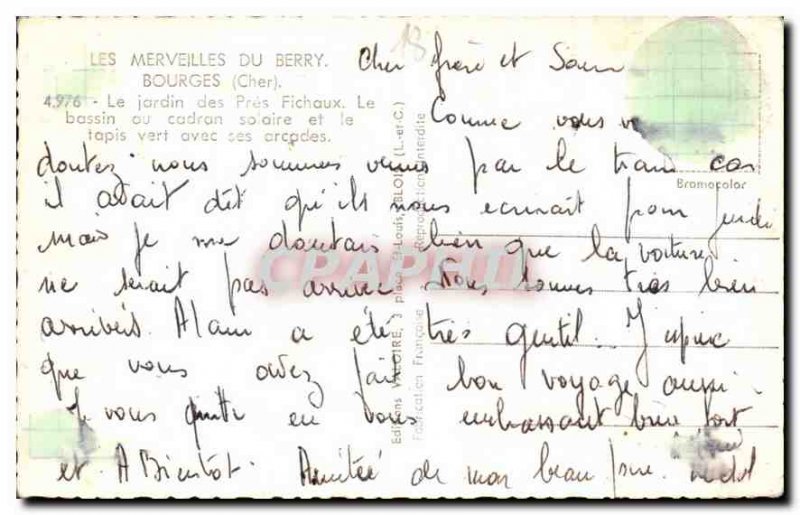 LES MERVEILLES DU BERRY.
BOURGES (Cher).
4.976 - Le jardin des Prés Fichaux. Le
bassin au cadran solaire et le
tapis vert avec ses arcades.
13
Cher frère et Soeur
Comme vous vous
doutez nous sommes venus par le train car
il avait dit qu'ils nous ecrirait pour jeudi
mais je me doutais bien que la voiture
ne serait pas arrivée Nous sommes très bien
arrivés. Alain a été très gentil. J'espère
que vous avez fait bon voyage aussi
Je vous quitte en vous embrassant bien fort
et A Bientôt. Amitiée de mon beau frère.
Bromocolor
Editions VALOIRE, 3 place St-Louis, BLOIS (L.-et-C.)
Fabrication Française - Reproduction interdite
CPAPHIL